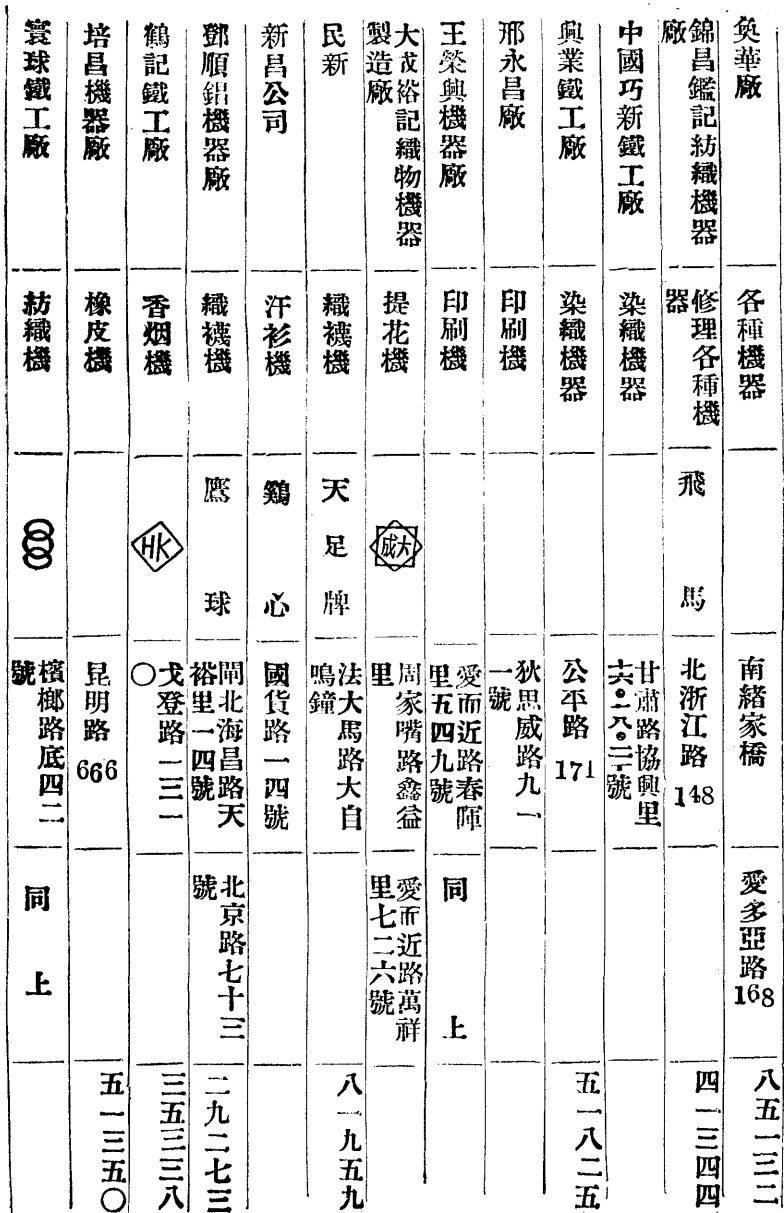 奐華廠 各種機器 南緒家橋 愛多亞路168 八五一三二
錦昌鑑記紡織機器
廠 修理各種機
器 飛馬 北浙江路148 四一三四四
中國巧新鐵工廠 染織機器 甘肅路協興里
十六。一八。二十號
興業鐵工廠 染織機器 公平路171 五一八二五
邢永昌廠 印刷機 狄思威路九一
一號
王榮興機器廠 印刷機 愛而近路春暉
里五四九號 同上
大成裕記織物機器
製造廠 提花機 大成 周家嘴路鑫益
里 愛而近路萬祥
里七二六號
民新 織襪機 天足牌 法大馬路大自
鳴鐘 八一九五九
新昌公司 汗衫機 鷄心 國貨路一四號
鄧順錩機器廠 織襪機 鷹球 閘北海昌路天
裕里一四號 北京路七十三
號 二九二七三
鶴記鐵工廠 香烟機 HK 戈登路一三一
〇 三五三三八
培昌機器廠 橡皮機 昆明路666 五一三五〇
寰球鐵工廠 紡織機 檳榔路底四二
號 同上